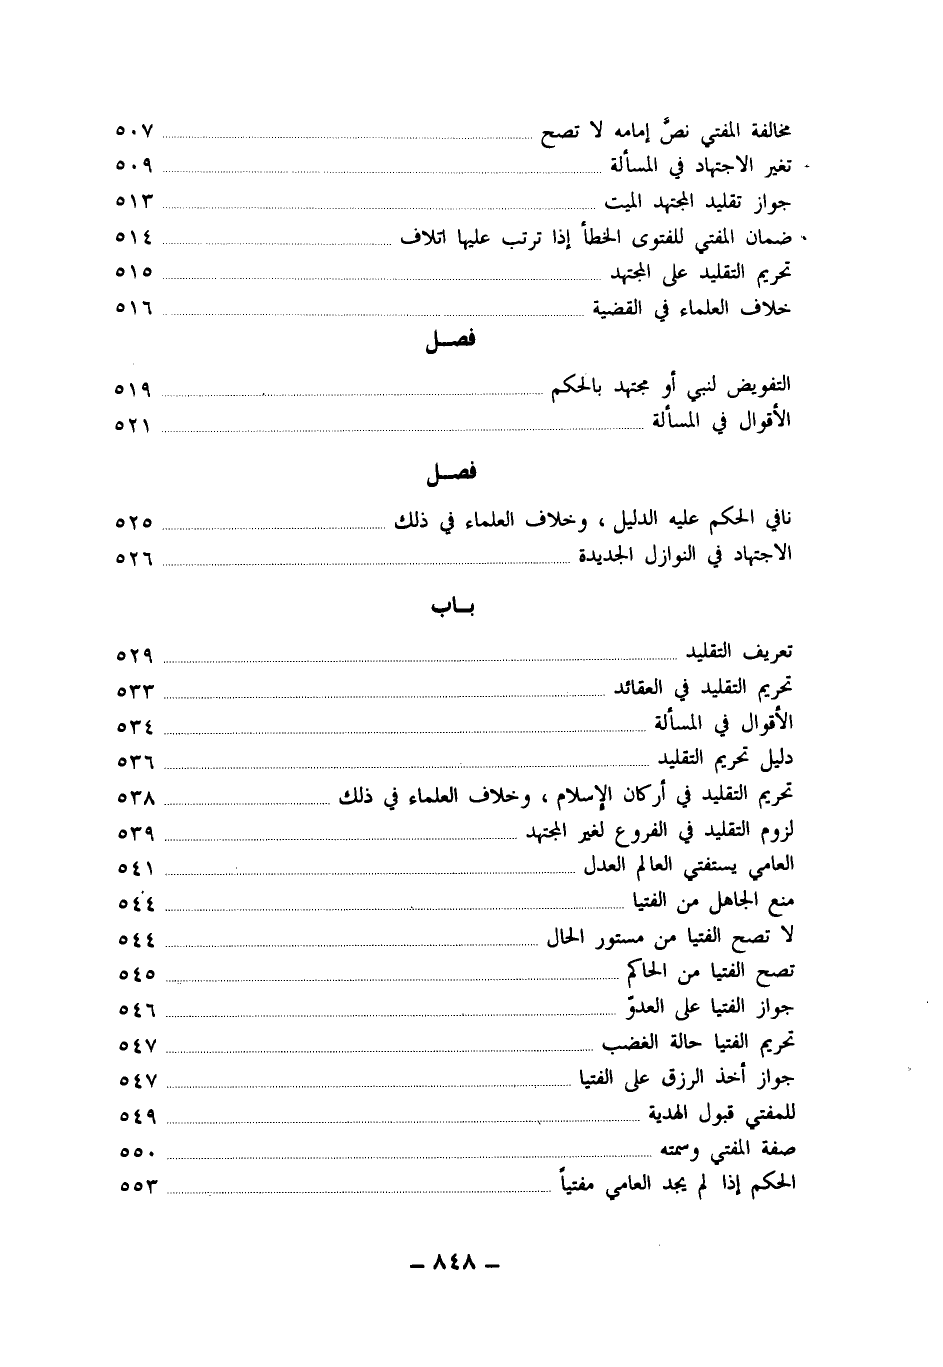 مخالفة المفتي نصَّ إمامه لا تصح ٥٠٧
تغير الاجتهاد في المسألة ٥٠٩
جواز تقليد المجتهد الميت ٥١٣
ضمان المفتي للفتوى الخطأ إذا ترتب عليها اتلاف ٥١٤
تحريم التقليد على المجتهد ٥١٥
خلاف العلماء في القضية ٥١٦
فصـــل
التفويض لنبي أو مجتهد بالحكم ٥١٩
الأقوال في المسألة ٥٢١
فصـــل
نافي الحكم عليه الدليل ، وخلاف العلماء في ذلك ٥٢٥
الاجتهاد في النوازل الجديدة ٥٢٦
بـــاب
تعريف التقليد ٥٢٩
تحريم التقليد في العقائد ٥٣٣
الأقوال في المسألة ٥٣٤
دليل تحريم التقليد ٥٣٦
تحريم التقليد في أركان الإسلام ، وخلاف العلماء في ذلك ٥٣٨
لزوم التقليد في الفروع لغير المجتهد ٥٣٩
العامي يستفتي العالم العدل ٥٤١
منع الجاهل من الفتيا ٥٤٤
لا تصح الفتيا من مستور الحال ٥٤٤
تصح الفتيا من الحاكم ٥٤٥
جواز الفتيا على العدوّ ٥٤٦
تحريم الفتيا حالة الغضب ٥٤٧
جواز أخذ الرزق على الفتيا ٥٤٧
للمفتي قبول الهدية ٥٤٩
صفة المفتي وسمته ٥٥٠
الحكم إذا لم يجد العامي مفتياً ٥٥٣
– ٨٤٨ –